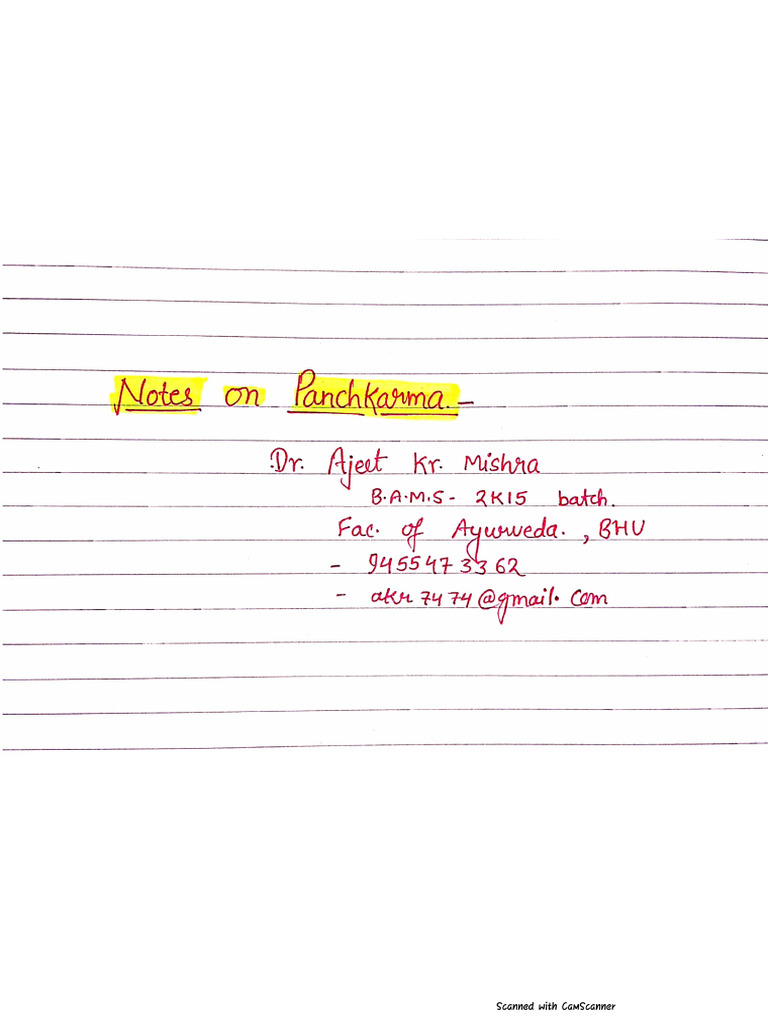 Notes on Panchkarma.-
Dr. Ajeet Kr. Mishra
B.A.M.S - 2K15 batch.
Fac. of Ayurveda. , BHU
- 9455473362
- akr7474@gmail.com
Scanned with CamScanner